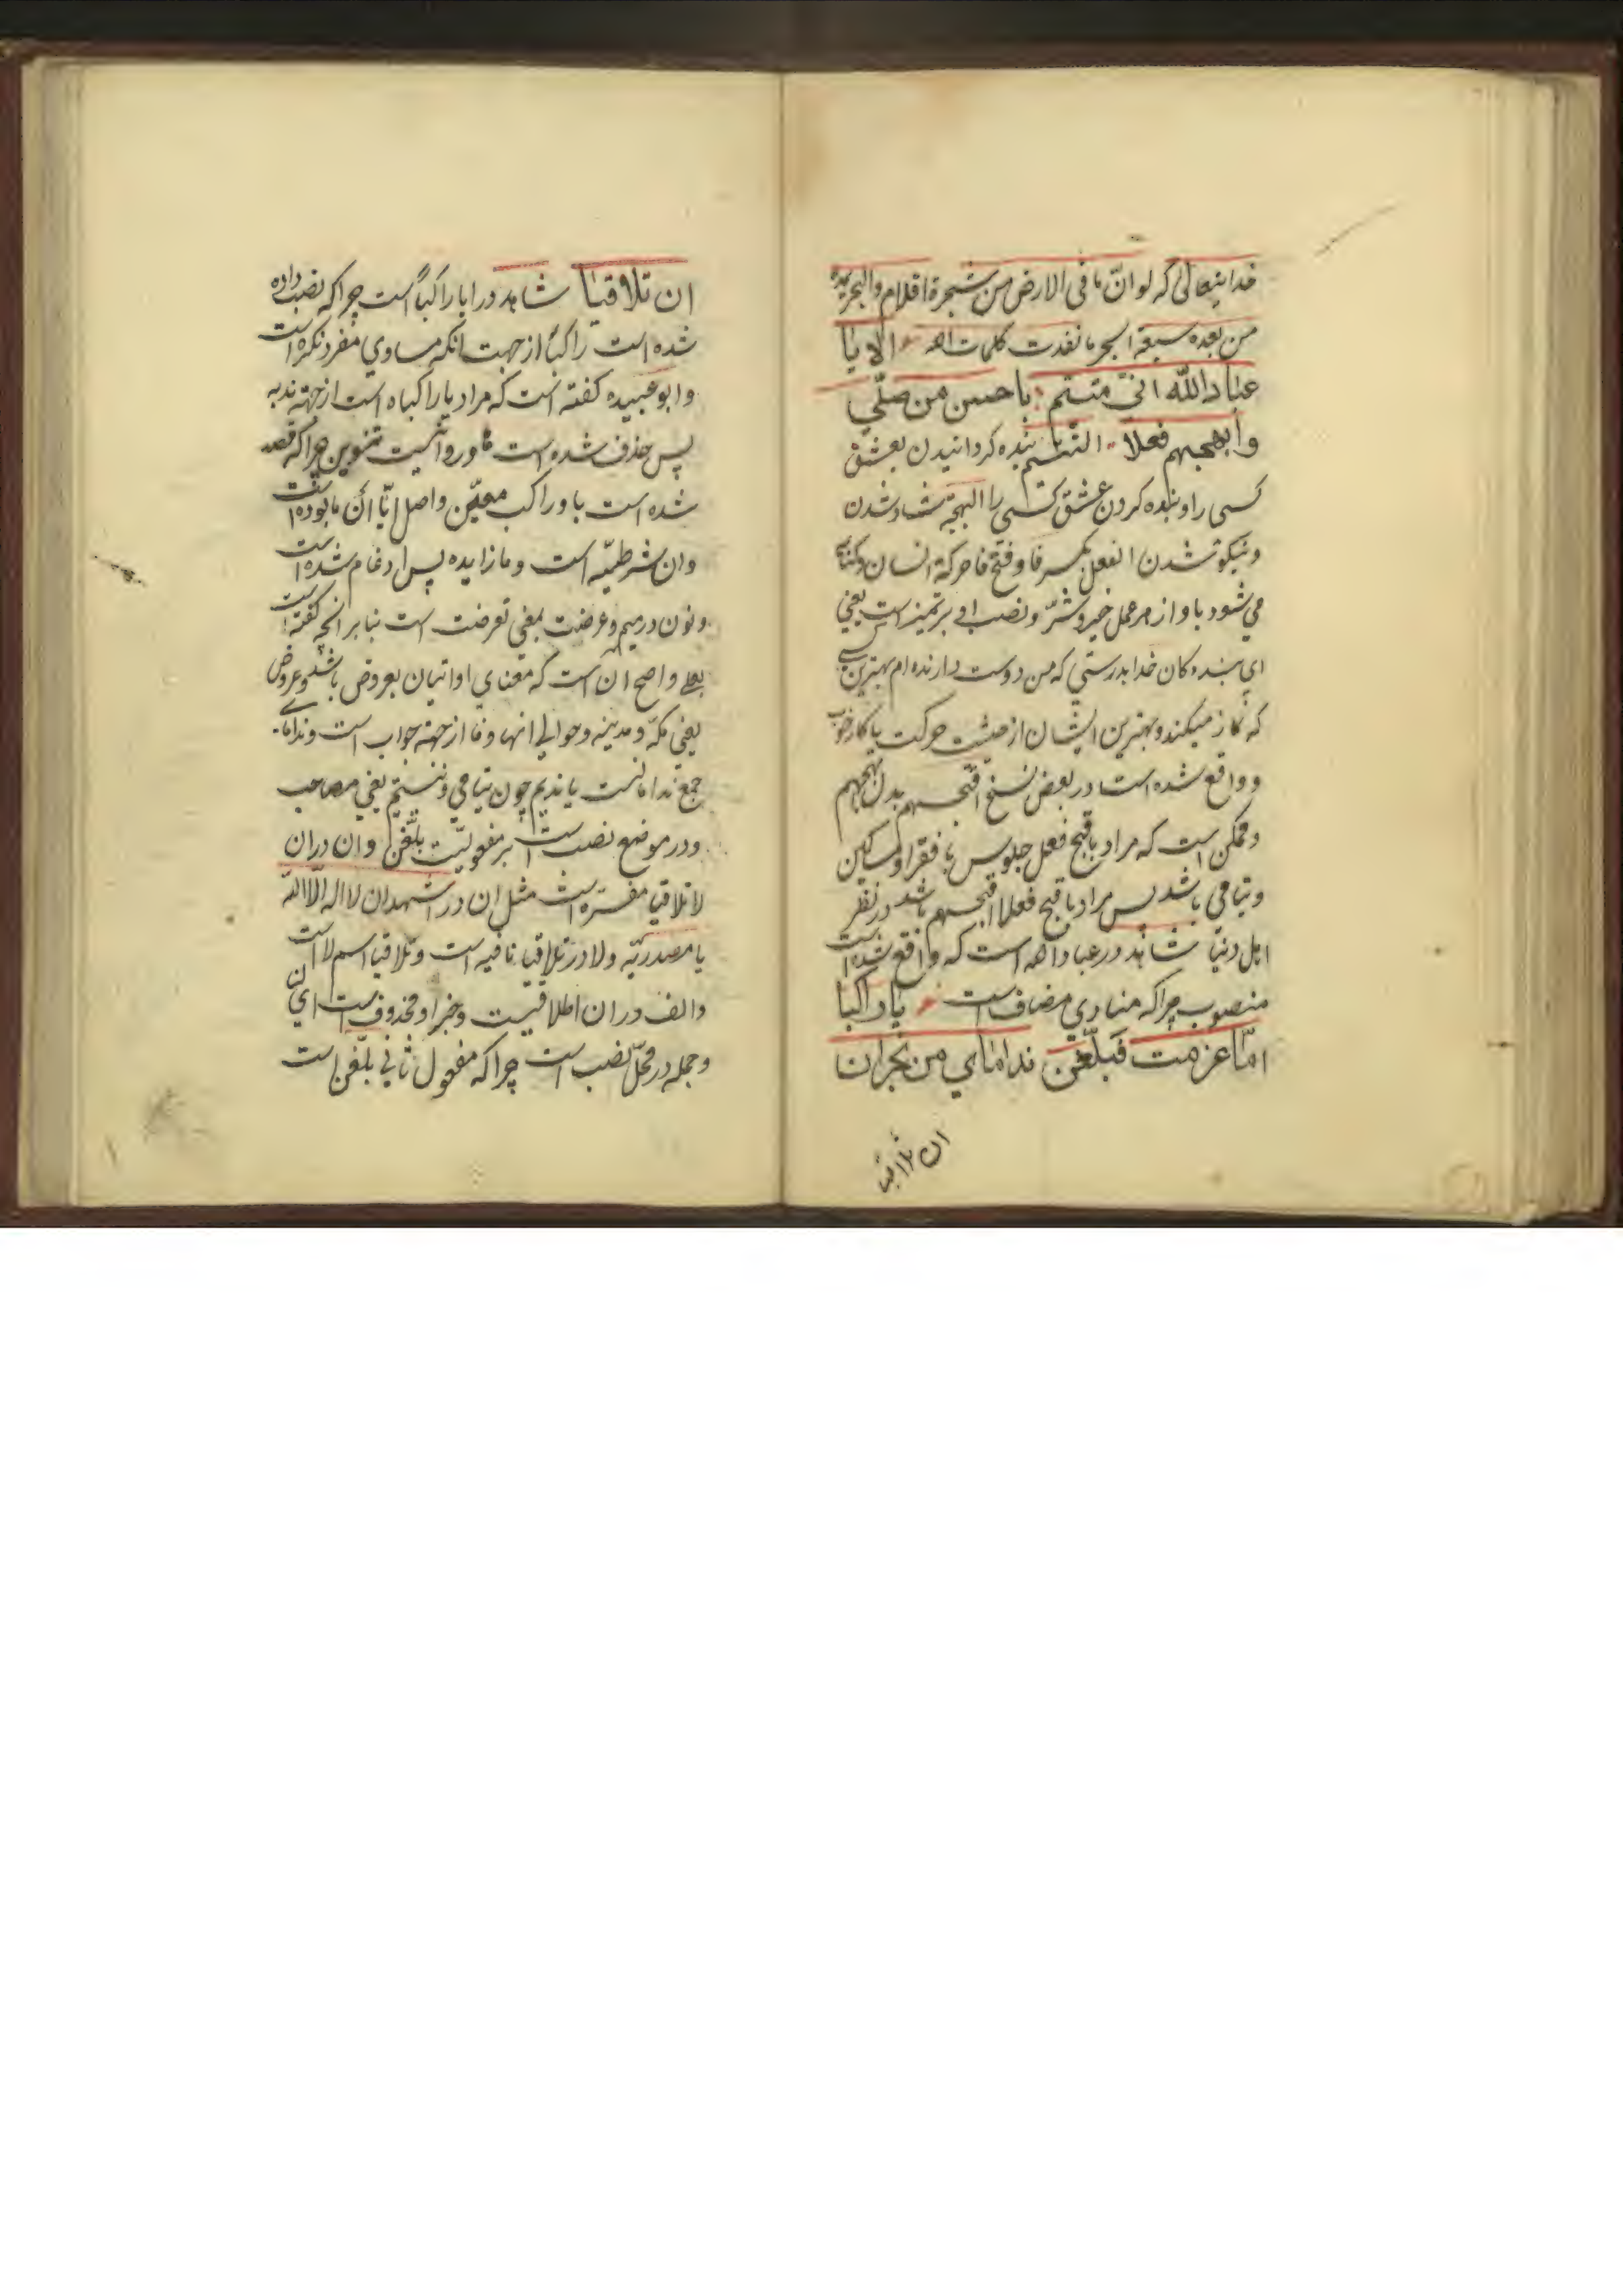 خدایتعالی که لو انّ ما فی الارض من شجرة اقلام والبحر یمده
من بعده سبعة ابحر ما نفدت کلمات الله الا یا
عباد الله انّی متیّم باحسن من صلّی
وابهجهم فعلا التتیّم بنده کردانیدن بعشق
کسی را و بنده کردن عشق کسی را البهجة شاد شدن
ونیکو شدن الفعل بکسر فا و فتح فا حرکة انسان وکنایه
می شود باو از هر عمل خیر و شرّ و نصب او بر تمیز است یعنی
ای بنده کان خدا بدرستی که من دوست دارنده ام بهترین کسی
که نماز میکند و بهترین ایشان از حیثیت حرکت یا کار خوب
و واقع شده است در بعض نسخ اقبحهم بدل ابهجهم
وممکن است که مراد باقبح فعل جلوس با فقرا و مساکین
ویتامی باشد پس مراد باقبح فعلا اقبحهم باشد در نظر
اهل دنیا شاهد در عباد الله است که واقع شده است
منصوب چراکه منادی مضاف است یا راکبا
امّا عرضت فبلّغن ندامای من نجران
ان تلاقیا
ان تلاقیا شاهد در ایا راکباً است چراکه نصب داده
شده است راکباً از جهت انکه مساوی مفرد نکره است
وابو عبیده کفته است که مراد یا راکباه است از جهة ندبه
پس حذف شده است ها و روا نیست تنوین چراکه قصد
شده است باو راکب معیّن واصل امّا ان ما بوده است
وان شرطیّه است وما زایده پس ادغام شده است
ونون در میم وعرضت بمعنی تعرضت است بنابر انچه کفته است
بعلی واصح ان است که معنای او اتیان بعروض باشد وعروض
یعنی مکّه ومدینه وحوالی انها وفا از جهة جواب است وندامای
جمع ندامانست یا ندیم چون یتامی ویتیم یعنی مصاحب
ودر موضع نصب است بر مفعولیّت بلّغن وان در ان
لا تلاقیا مفسّره است مثل ان در اشهد ان لا اله الّا الله
یا مصدریّه ولا در تلاقیا نافیه است وتلاقیا اسم لا است
والف در ان اطلاقیست وخبر او محذوف است ای لن
وجمله در محلّ نصب است چراکه مفعول ثانی بلّغن است